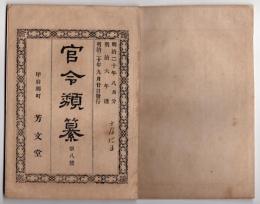 明治二十年八月分
明治六年達
明治二十年九月廿日發行
官令類纂
第八號
甲府柳町
芳文堂